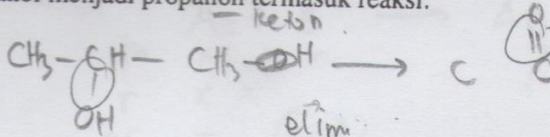 menjadi propanon termasuk reaksi.
keton
CH₃ – CH – CH₃ OH → C O
OH
elim